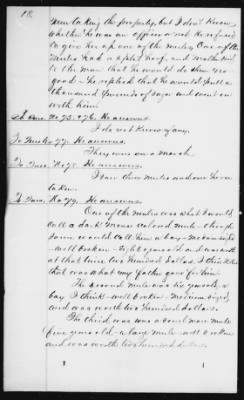 18.
men taking the property, but I don't know
whether he was an officer or not. He refused
to give up one of the mules. One of the
mules had a split hoof, and brother said
to the man that he would do them no
good - he replied that he would pull a
thousand pounds of sugar and went on
with him.
No. 75 & 76. He answers.
I do not know of any.
77. He answers.
They were on a march.
To No. 78. He answers.
two mules and one horse
taken.
To No. 79. He answers.
One of the mules was what I would
call a dark brown colored mule - though
some would call him a bay - medium size
- well broken - eight years old and was worth
at that time two hundred dollars. I think
that was what my father gave for him.
The second mule was six years old, a
bay I think - well broken - medium sized,
and was worth two hundred dollars.
The third was a mare mule
five years old - a large mule - well broken
and was worth two hundred dollars